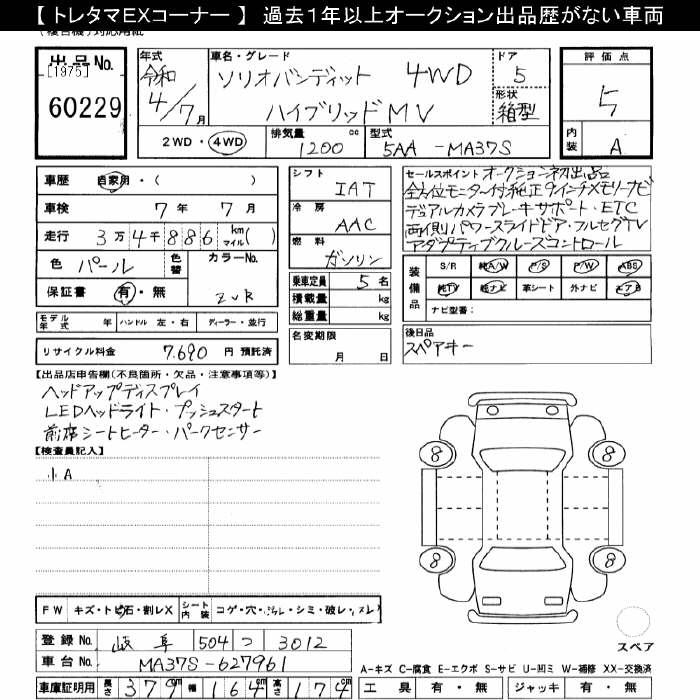 【 トレタマEXコーナー 】 過去1年以上オークション出品歴がない車両
(複合機)対応用紙
出品No.
[1975]
60229
年式
令和
4/7月
車名・グレード
ソリオバンディット 4WD
ハイブリッドMV
ドア
5
形状
箱型
評価点
5
内装
A
2WD・4WD
排気量
1200 cc
型式
5AA-MA37S
車歴 自家用・( )
車検 7年 7月
走行 3万4千886 km/マイル( )
色 パール 色替
カラーNo.
ZVR
保証書 有・無
モデル年式 年 ハンドル 左・右 ディーラー・並行
リサイクル料金 7,690 円 預託済
シフト
IAT
冷房
AAC
燃料
ガソリン
乗車定員 5名
積載量 kg
総重量 kg
名変期限
月 日
セールスポイント オークション初出品
全方位モニター付純正9インチメモリーナビ
デュアルカメラブレーキサポート・ETC
両側パワースライドドア・フルセグTV
アダプティブクルーズコントロール
装備品
S/R 純A/W P/S P/W ABS
純TV 純ナビ 革シート 外ナビ エアB
ナビ型番:
後日品
スペアキー
【出品店申告欄(不良箇所・欠品・注意事項等)】
ヘッドアップディスプレイ
LEDヘッドライト・プッシュスタート
前席シートヒーター・パークセンサー
【検査員記入】
小A
8
8
8
8
スペア
FW キズ・トビ石・割レX シート内装 コゲ・穴・汚レ・シミ・破レ・スレ
登録No. 岐阜 504 つ 3012
車台No. MA37S-627961
車庫証明用 長さ 379cm 幅 164cm 高さ 174cm
A-キズ C-腐食 E-エクボ S-サビ U-凹ミ W-補修 XX-交換済
工具 有・無 ジャッキ 有・無